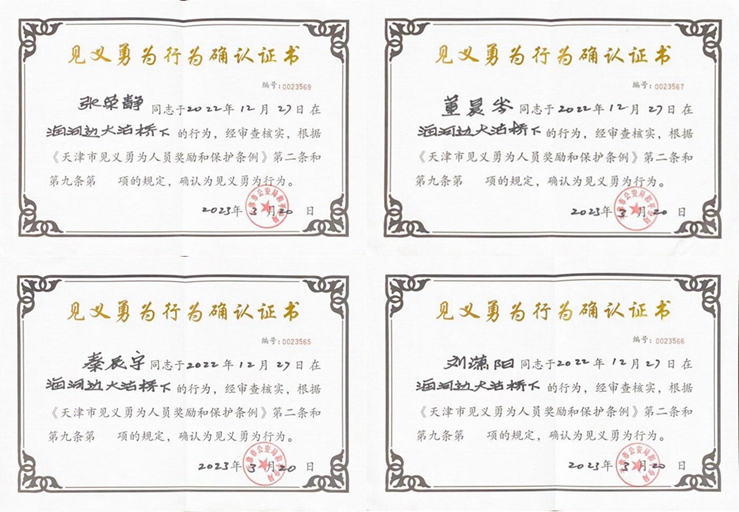 见义勇为行为确认证书
编号:0023569
张荣静同志于2022年12月27日在
海河边大沽桥下的行为，经审查核实，根据
《天津市见义勇为人员奖励和保护条例》第二条和
第九条第 项的规定，确认为见义勇为行为。
2023年3月20日
见义勇为行为确认证书
编号:0023567
董晨岑同志于2022年12月27日在
海河边大沽桥下的行为，经审查核实，根据
《天津市见义勇为人员奖励和保护条例》第二条和
第九条第 项的规定，确认为见义勇为行为。
2023年3月20日
见义勇为行为确认证书
编号:0023565
秦辰宇同志于2022年12月27日在
海河边大沽桥下的行为，经审查核实，根据
《天津市见义勇为人员奖励和保护条例》第二条和
第九条第 项的规定，确认为见义勇为行为。
2023年3月20日
见义勇为行为确认证书
编号:0023566
刘潇阳同志于2022年12月27日在
海河边大沽桥下的行为，经审查核实，根据
《天津市见义勇为人员奖励和保护条例》第二条和
第九条第 项的规定，确认为见义勇为行为。
2023年3月20日